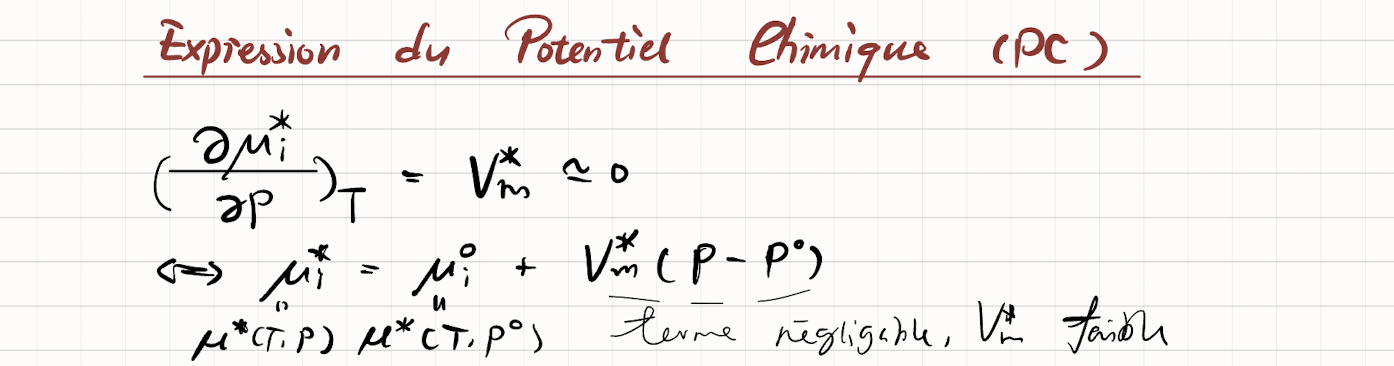 Expression du Potentiel Chimique (PC)
(∂μᵢ*/∂P)_T = Vₘ* ≃ 0
⟺ μᵢ* = μᵢ° + Vₘ* (P - P°)
μ*(T, P) μ*(T, P°) terme négligable, Vₘ* faible